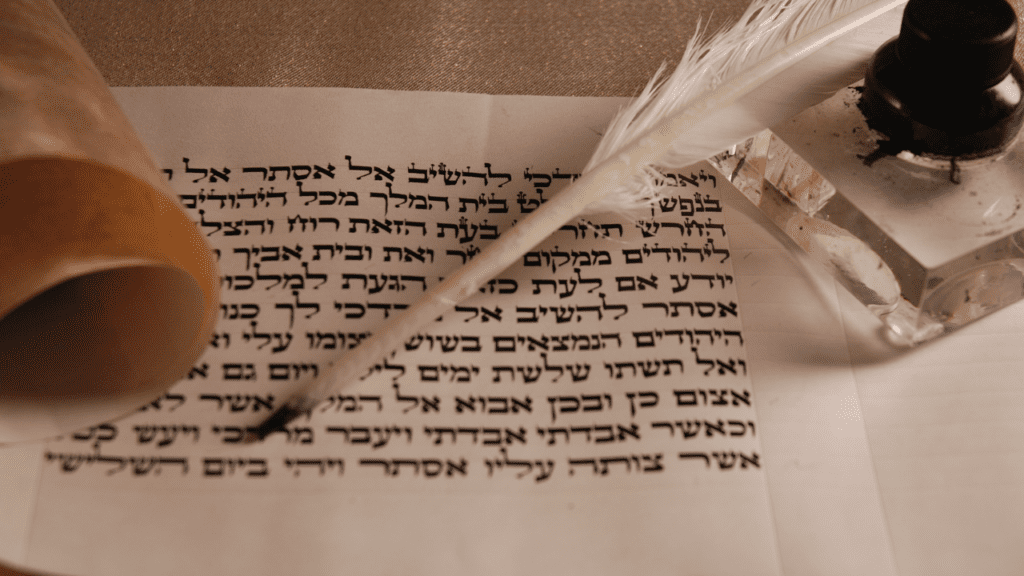 להשיב אל אסתר אל
בית המלך מכל היהודים
החרש בעת הזאת רוח
ליהודים ממקום ואת ובית אביך
יודע אם לעת הגעת
אסתר להשיב אל לך
היהודים הנמצאים עלי
ואל תשתו שלשת ימים ויום גם
אצום כן ובכן אבוא אל המלך אשר לא
וכאשר אבדתי אבדתי ויעבר מרדכי ויעש
אשר צותה עליו אסתר ויהי ביום השלישי